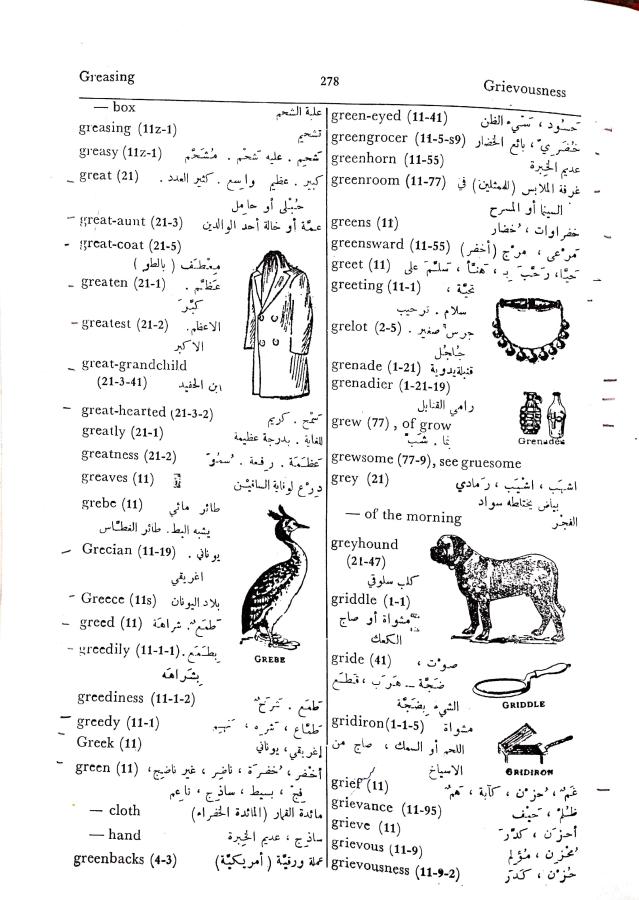 Greasing 278 Grievousness
— box علبة الشحم
greasing (11z-1) تشحيم
greasy (11z-1) شَحِيم . عليه شَحْم . مُشَحَّم
great (21) كبير . عظيم واسع . كثير العدد .
حُبْلى أو حامل
great-aunt (21-3) عمّة أو خالة أحد الوالدين
great-coat (21-5)
مِعْطَف ( بالطو )
greaten (21-1) عَظَّمَ .
كَبَّرَ
greatest (21-2) الاعظم .
الاكبر
great-grandchild
(21-3-41) ابن الحفيد
great-hearted (21-3-2) سَمْح . كريم
greatly (21-1) للغاية . بدرجة عظيمة
greatness (21-2) عَظَمَة . رفعة . سُمُوّ
greaves (11) درع لوقاية الساقين
grebe (11) طائر مائي
يشبه البط . طائر الغطّاس
Grecian (11-19) يوناني .
اغريقي
Greece (11s) بلاد اليونان
greed (11) طَمَع . شراهة
greedily (11-1-1) بِطَمَع .
بِشراهة
GREBE
greediness (11-1-2) طَمَع .
greedy (11-1) طَمّاع ، شَرِه ، نَهِم
Greek (11) إغريقي، يوناني
green (11) أخْضَر ، خُضرَة ، ناضِر ، غير ناضِج ،
فِجّ ، بسيط ، ساذِج ، ناعم
— cloth مائدة القمار (المائدة الخضراء)
— hand ساذج ، عديم الخبرة
greenbacks (4-3) عملة ورقيّة ( أمريكيّة )
green-eyed (11-41) حَسُود ، سَيّء الظن
greengrocer (11-5-s9) خُضَريّ ، بائع الخضار
greenhorn (11-55) عديم الخبرة
greenroom (11-77) غرفة الملابس (للممثلين) في
السينما أو المسرح
greens (11) خضراوات ، خُضار
greensward (11-55) مَرْعى ، مَرْج (أخضر)
greet (11) حَيَّا، رَحَّب بِـ ، هَنَّأ ، سَلَّم على
greeting (11-1) تحيَّة ،
سلام . ترحيب
grelot (2-5) . جرس صغير .
جُلْجُل
grenade (1-21) قنبلة يدوية
grenadier (1-21-19)
رامي القنابل
Grenades
grew (77) , of grow
نما . شَبّ
grewsome (77-9), see gruesome
grey (21) اشهَب ، اشْيَب ، رَمادي
بياض يخالطه سواد
— of the morning الفجر
greyhound
(21-47)
كلب سلوقي
griddle (1-1)
مشواة أو صاج
الكعك
gride (41) صوّت ،
ضَجَّة — هَرَب ، قطَع
الشيء بِضَجَّة
GRIDDLE
gridiron(1-1-5) مشواة
اللحم أو السمك ، صاج من
الاسياخ
GRIDIRON
grief (11) غَمّ ، حُزْن ، كآبة ، هَمّ
grievance (11-95) ظُلْم ، حَيْف
grieve (11) أحزَن ، كدَّرَ
grievous (11-9) مُحْزِن ، مُؤلم
grievousness (11-9-2) حُزْن ، كَدَر